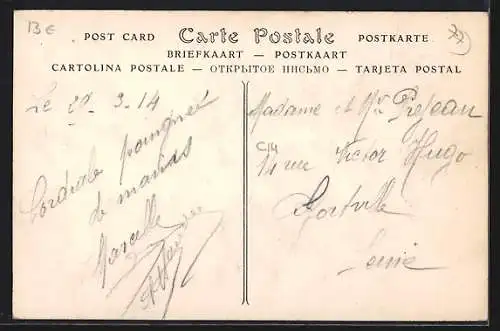 13€
POST CARD Carte Postale POSTKARTE
BRIEFKAART — POSTKAART
CARTOLINA POSTALE — ОТКРЫТОЕ ПИСЬМО — TARJETA POSTAL
Le 3.14
Cordiale poignée
de mains
Marcelle
Madame et Mr
C14
14 rue Victor Hugo